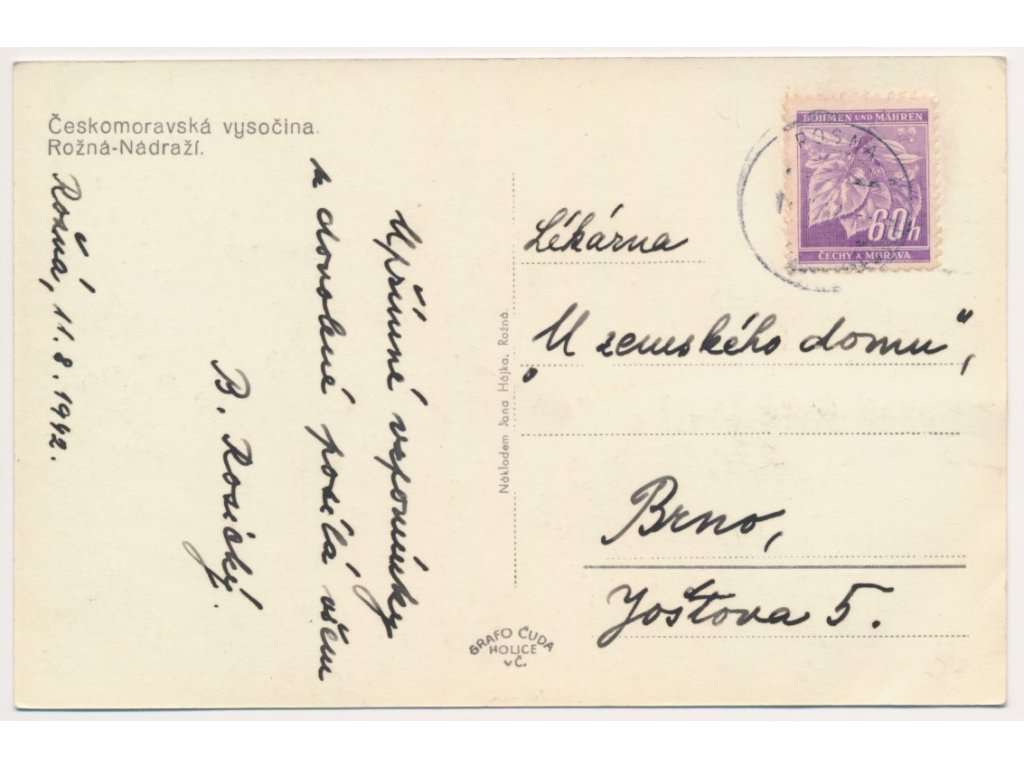 Českomoravská vysočina.
Rožná-Nádraží.
Rožná, 11. 8. 1942.
Upřímné vzpomínky
z dovolené posílá všem
B. Rosický.
Nákladem Jana Hájka, Rožná.
GRAFO ČUDA
HOLICE
v Č.
BÖHMEN UND MÄHREN
60h
ČECHY A MORAVA
ROSNA
Lékárna
„U zemského domu“,
Brno,
Joštova 5.